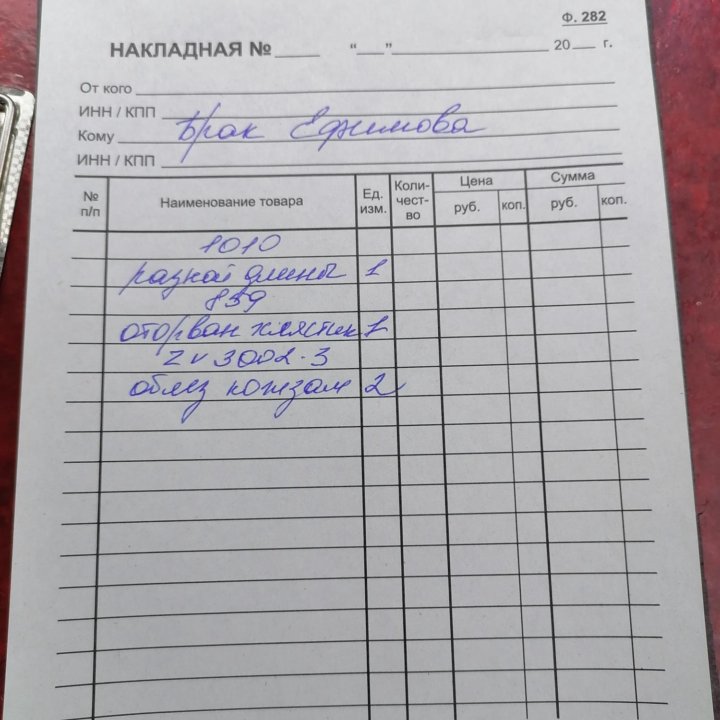 Ф. 282
НАКЛАДНАЯ № ____ "___"____________ 20___ г.
От кого
ИНН / КПП
Кому Брак Ефимова
ИНН / КПП
№ п/п Наименование товара Ед. изм. Коли-чест-во Цена руб. коп. Сумма руб. коп.
1010
разной длины 1
839
оторван хлястик 1
ZV3002-3
облез кожзам 2